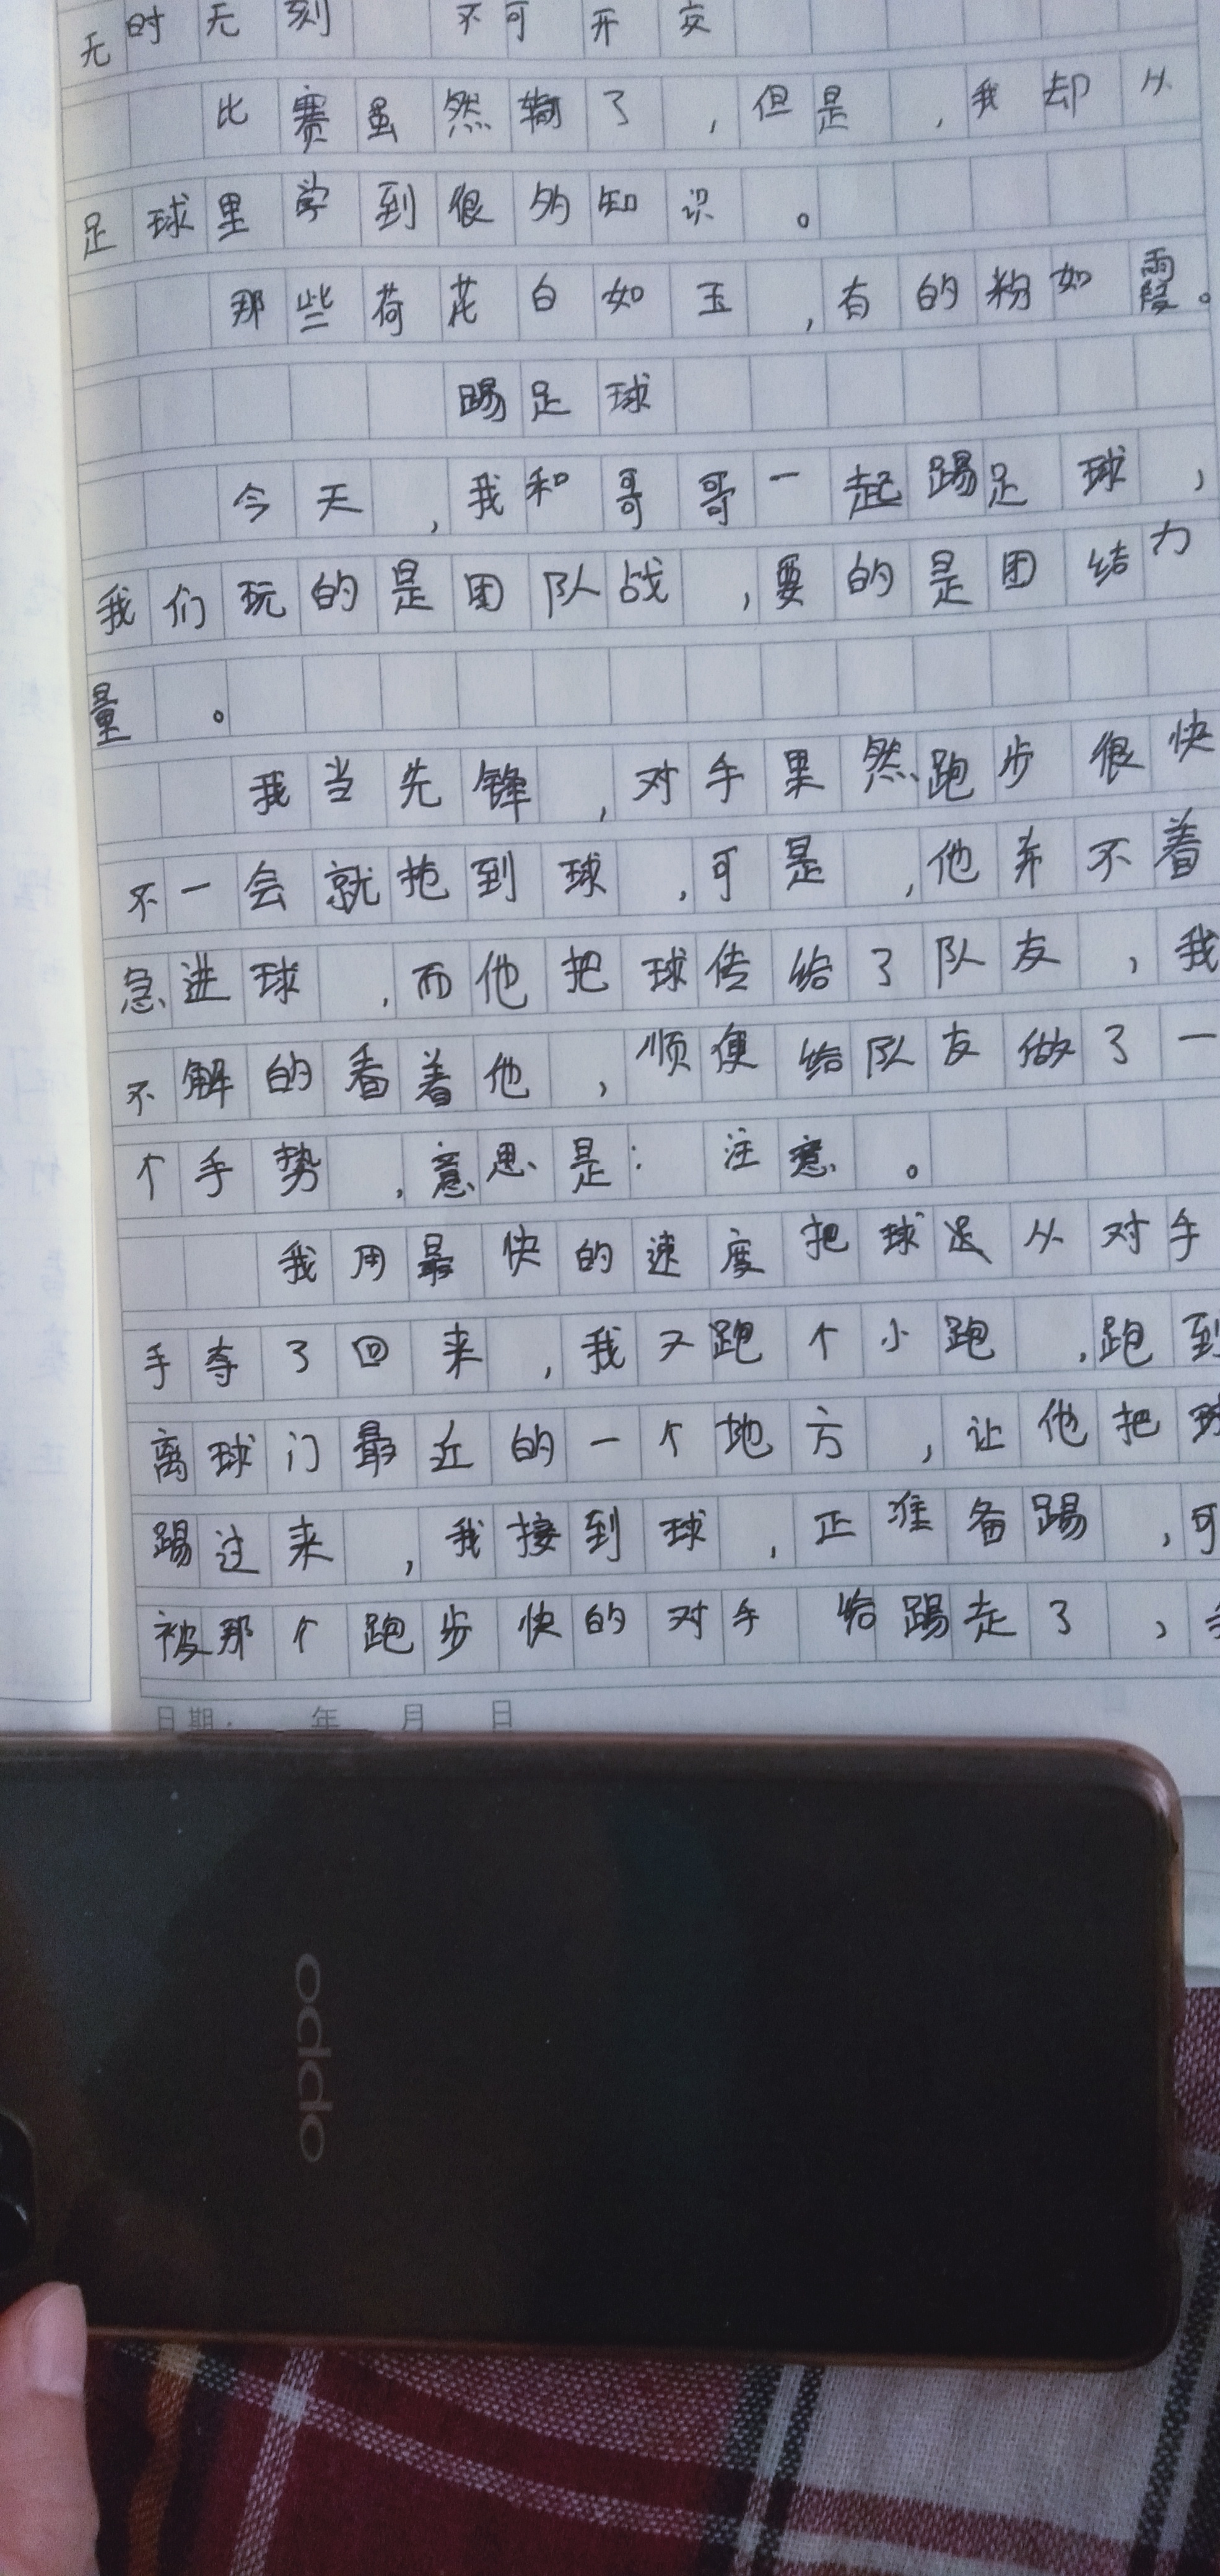 无时无刻 不可开交
比赛虽然输了，但是，我却从
足球里学到很多知识。
那些荷花白如玉，有的粉如霞。
踢足球
今天，我和哥哥一起踢足球，
我们玩的是团队战，要的是团结力
量。
我当先锋，对手果然跑步很快
不一会就抢到球，可是，他并不着
急进球，而他把球传给了队友，我
不解的看着他，顺便给队友做了一
个手势，意思是：注意。
我用最快的速度把球从对手
手夺了回来，我又跑个小跑，跑到
离球门最近的一个地方，让他把球
踢过来，我接到球，正准备踢，可
被那个跑步快的对手给踢走了，
日期： 年 月 日
oppo